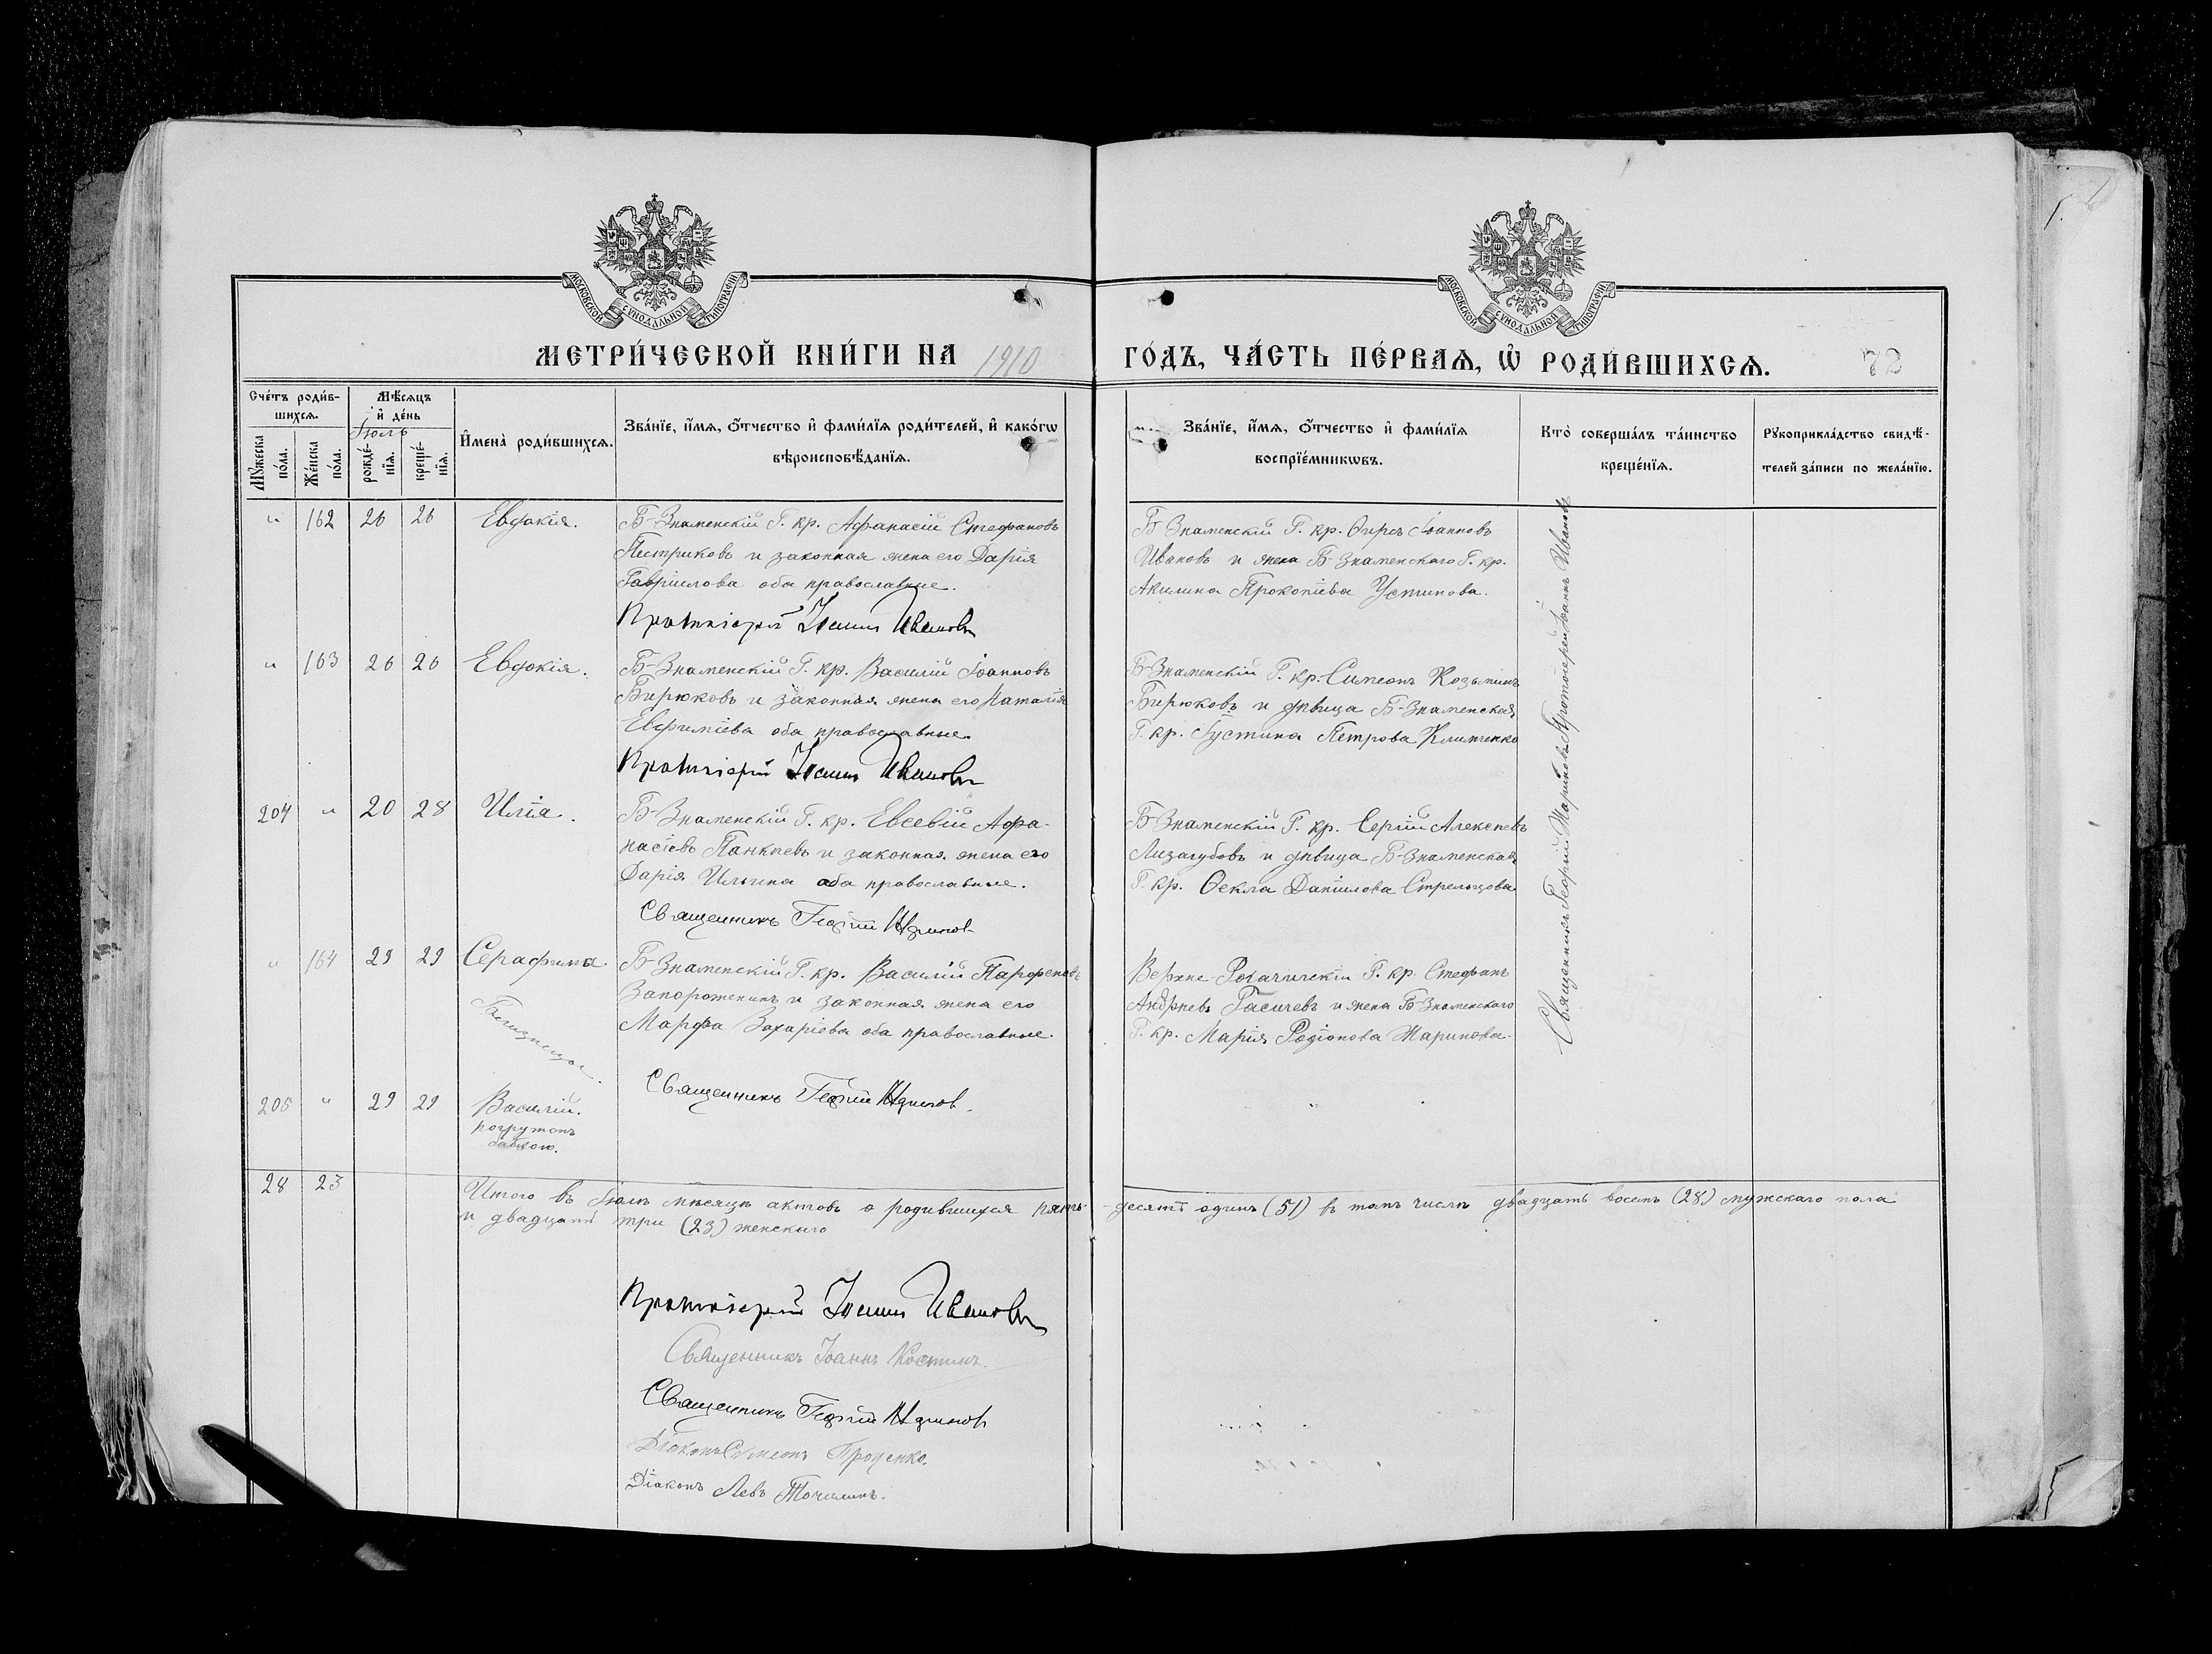 МОСКОВСКОЙ СѴНОДАЛЬНОЙ ТИПОГРАФІИ
МОСКОВСКОЙ СѴНОДАЛЬНОЙ ТИПОГРАФІИ
МЕТРИ́ЧЕСКОЙ КНИ́ГИ НА 1910
ГО́ДЪ, ЧА́СТЬ ПЕ́РВАѦ, Ѽ РОДИ́ВШИХСѦ.
72
Сче́тъ роди́в-
шихсѧ.
Мꙋ́жеска по́ла.
Же́нска по́ла.
Мѣ́сѧцъ
и҆ де́нь
Іюль
рожде́-
нїѧ.
креще́-
нїѧ.
И҆мена̀ роди́вшихсѧ.
Зва́нїе, и҆́мѧ, ѻ҆́тчество и҆ фами́лїѧ роди́телей, и҆ како́гѡ
вѣроисповѣ́данїѧ.
Зва́нїе, и҆́мѧ, ѻ҆́тчество и҆ фами́лїѧ
воспрїе́мникѡвъ.
Кто̀ соверша́лъ та́инство
креще́нїѧ.
Рꙋкоприкла́дство свидѣ́-
телей за́писи по жела́нїю.
" 162 26 26 Евдокія.
Б-Знаменскій Г. кр. Афанасій Стефановъ
Пестриковъ и законная жена его Дарія
Гавріилова оба православные.
Протоіерей Іоаннъ Ивановъ
Б Знаменскій Г. кр. Ѳирсъ Іоанновъ
Ивановъ и жена Б-Знаменскаго Г. кр.
Акилина Прокопіева Устинова.
" 163 26 26 Евдокія.
Б-Знаменскій Г. кр. Василій Іоанновъ
Бирюковъ и законная жена его Наталія
Евфиміева оба православные.
Протоіерей Іоаннъ Ивановъ
Б-Знаменскій Г. кр. Симеонъ Козьминъ
Бирюковъ и дѣвица Б-Знаменская
Г. кр. Іустина Петрова Климченко
204 " 20 28 Илія.
Б-Знаменскій Г. кр. Евсевій Афа-
насіевъ Панкѣевъ и законная жена его
Дарія Ильина оба православные.
Священникъ Георгій
Б Знаменскій Г. кр. Сергій Алексѣевъ
Лизагубовъ и дѣвица Б-Знаменская
Г. кр. Ѳекла Даніилова Стрельцова
" 164 29 29 Серафима
Близнецы.
Б-Знаменскій Г. кр. Василій Парфеновъ
Запорожченъ и законная жена его
Марфа Захаріева оба православные.
Священникъ Георгій
Верхне-Рогачикскій Г. кр. Стефанъ
Андреевъ и жена Б-Знаменскаго
Г. кр. Марія Родіонова Жаринова.
205 " 29 29 Василій.
погружонъ
бабкою.
Священникъ Георгій Протоіерей Іоаннъ Ивановъ
28 23
Итого въ Іюлѣ мѣсяцѣ актовъ о родившихся пять-десятъ одинъ (51) въ томъ числѣ двадцать восемь (28) мужскаго пола
и двадцать три (23) женскаго
Протоіерей Іоаннъ Ивановъ
Священникъ Іоаннъ Костинъ.
Священникъ Георгій
Діаконъ Сѵмеонъ Проценко.
Діаконъ Левъ Точилинъ.